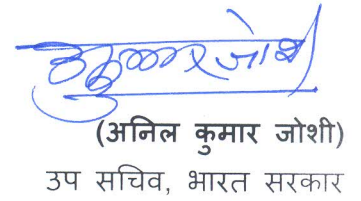 (अनिल कुमार जोशी)
उप सचिव, भारत सरकार